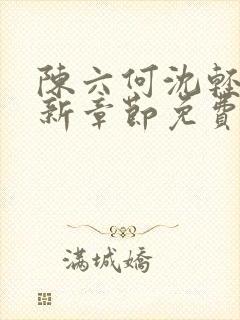 陳六何沈輕
新章節免費
滿城嬌